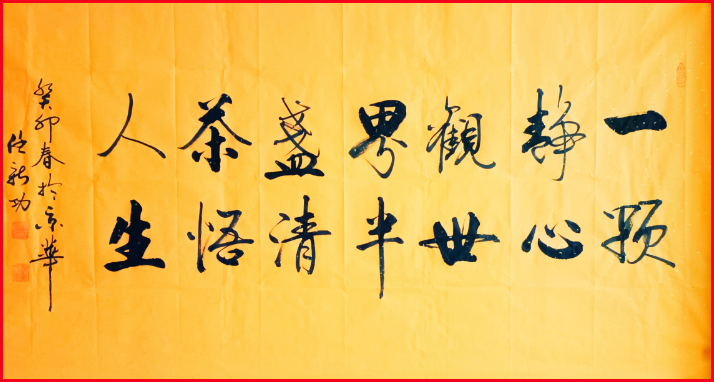 一颗
静心
觀世
界半
盏清
茶悟
人生
癸卯春於京華
任新功